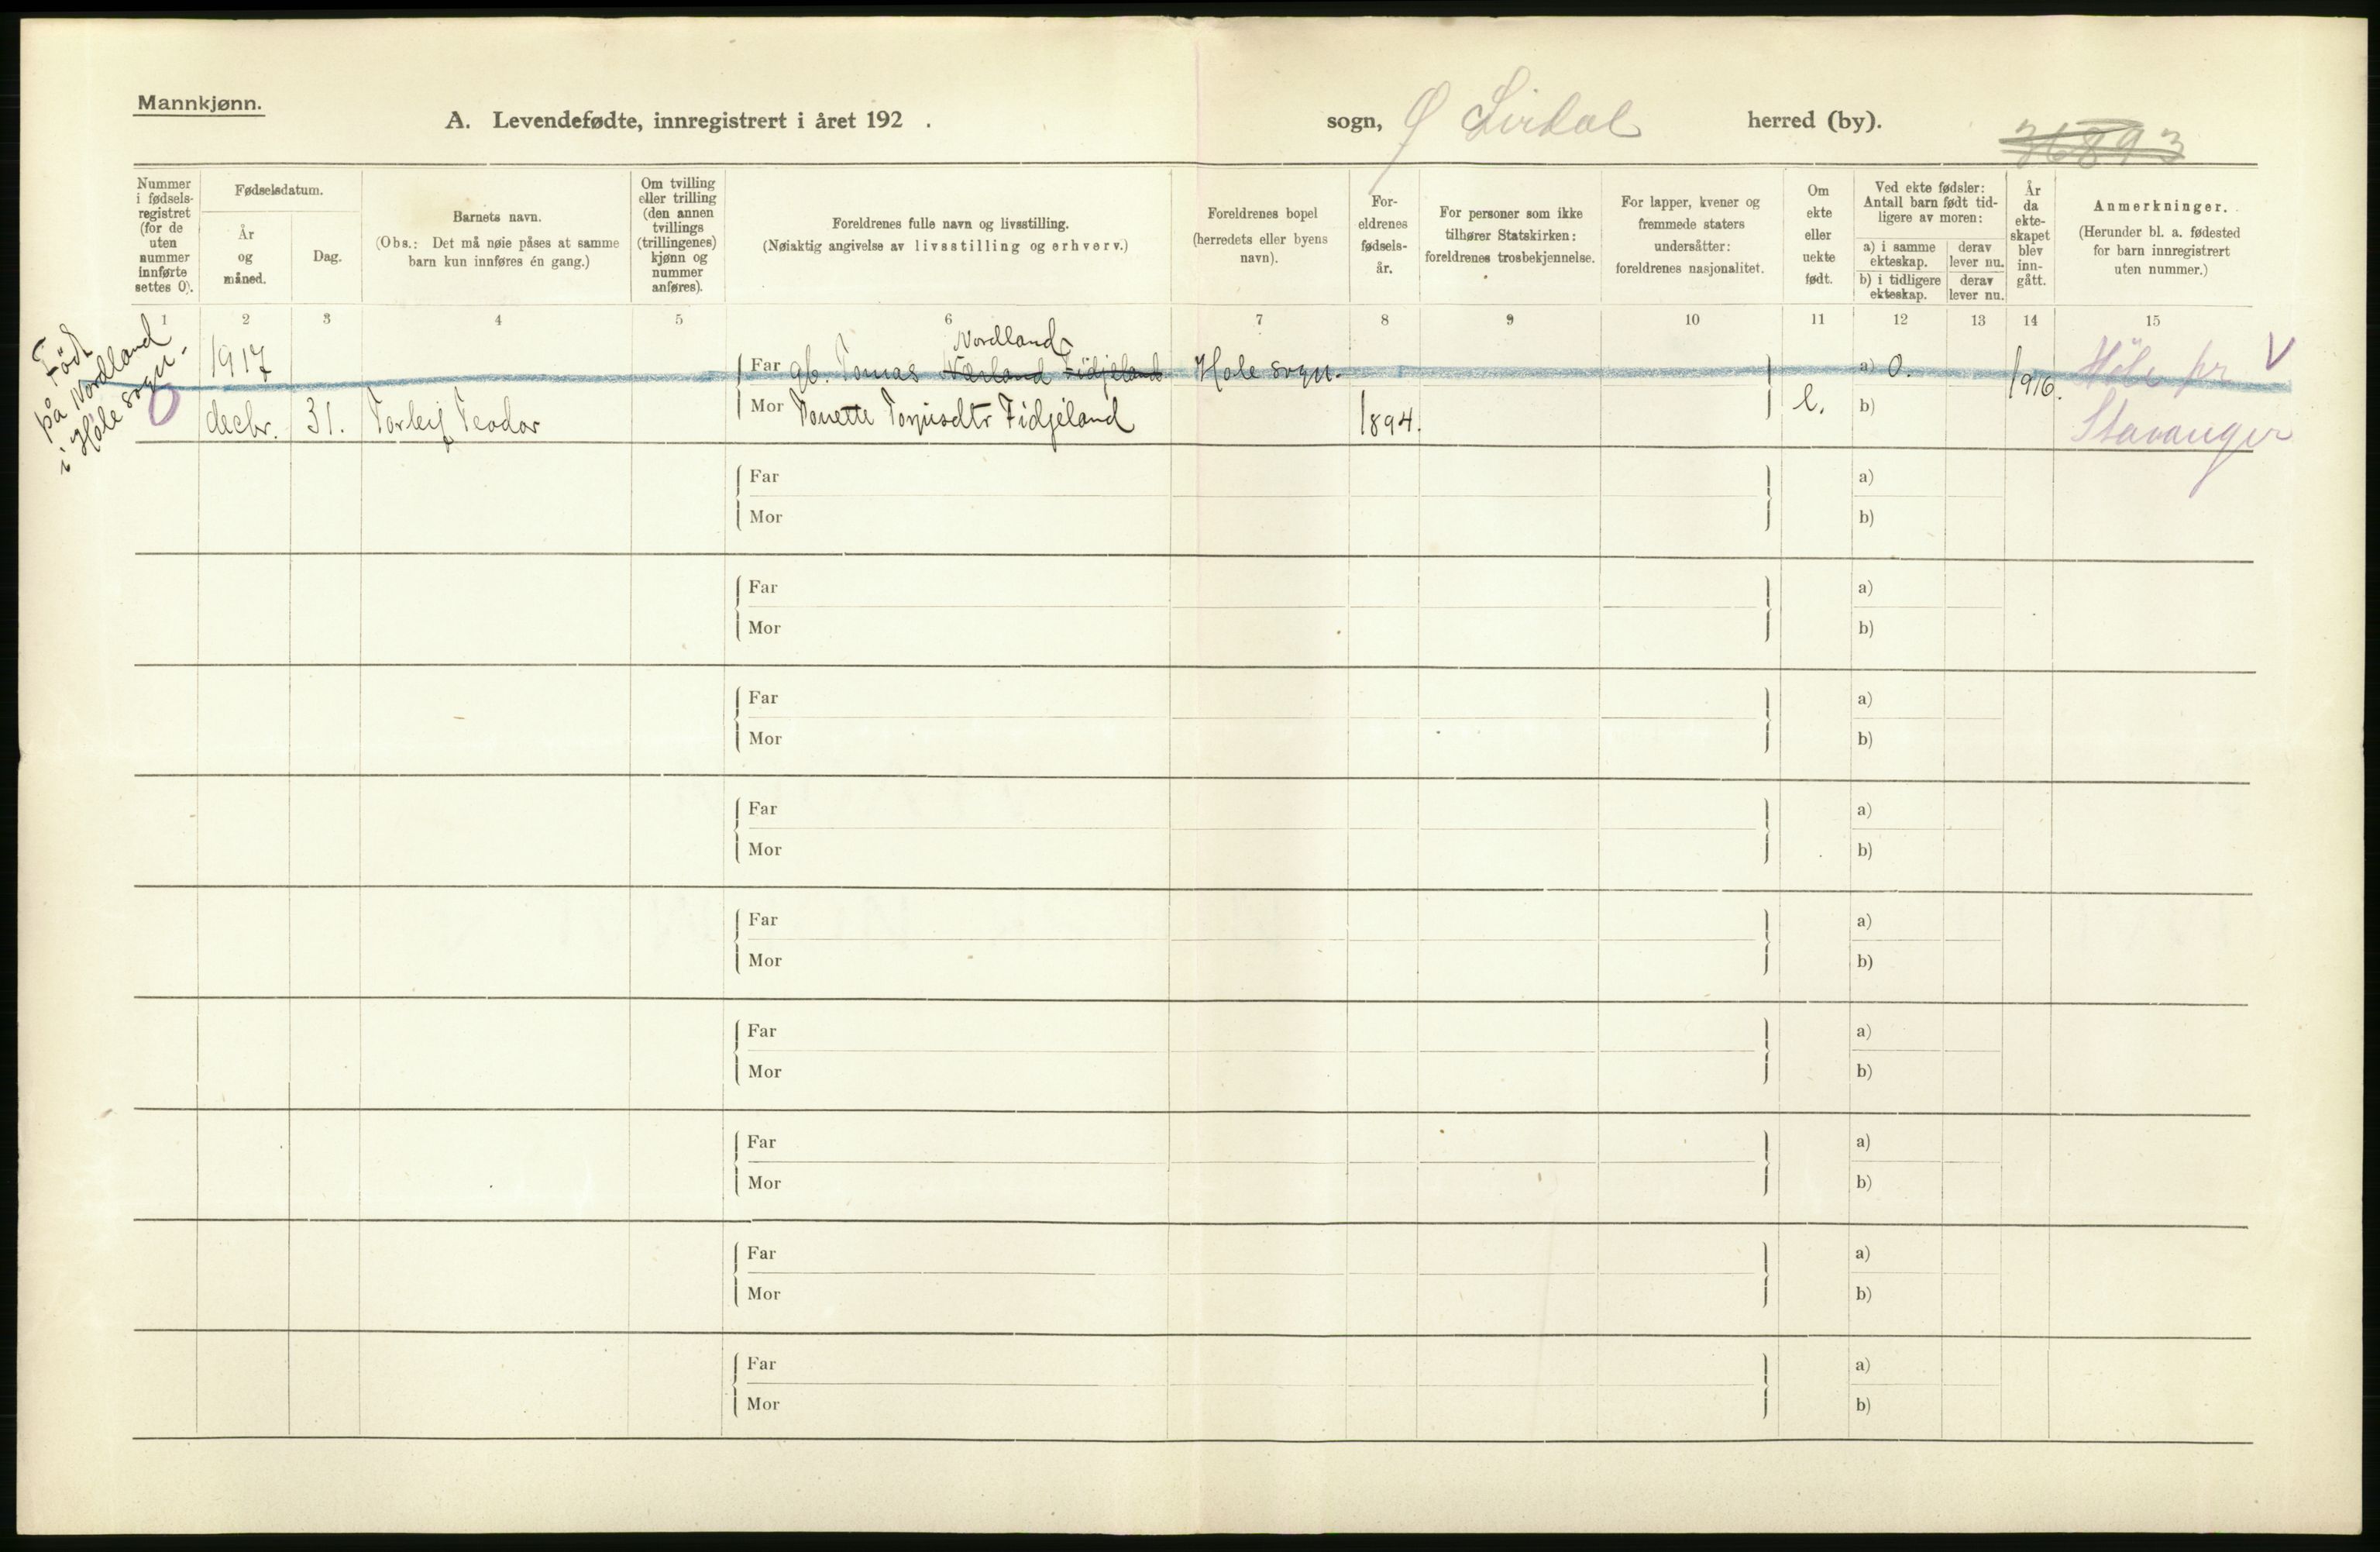 Mannkjønn.
A. Levendefødte, innregistrert i året 192 .
sogn, Ø Sirdal herred (by).
36893
Nummer i fødsels-registret (for de uten nummer innførte settes 0).
Fødselsdatum.
År og måned.
Dag.
Barnets navn.
(Obs.: Det må nøie påses at samme barn kun innføres én gang.)
Om tvilling eller trilling (den annen tvillings (trillingenes) kjønn og nummer anføres).
Foreldrenes fulle navn og livsstilling.
(Nøiaktig angivelse av livsstilling og erhverv.)
Foreldrenes bopel (herredets eller byens navn).
For-eldrenes fødsels-år.
For personer som ikke tilhører Statskirken: foreldrenes trosbekjennelse.
For lapper, kvener og fremmede staters undersåtter: foreldrenes nasjonalitet.
Om ekte eller uekte født.
Ved ekte fødsler: Antall barn født tid-ligere av moren:
a) i samme ekteskap.
derav lever nu.
b) i tidligere ekteskap.
derav lever nu.
År da ekte-skapet blev inn-gått.
Anmerkninger.
(Herunder bl. a. fødested for barn innregistrert uten nummer.)
1 2 3 4 5 6 7 8 9 10 11 12 13 14 15
Født
på Nordland
i Høle sogn.
0
1917
decbr. 31. Torleif Teodor
Nordland
Far gb. Tomas Nærland Fidjeland Høle sogn. a) 0. 1916. Høle pr V
Mor Tonette Torjusdtr Fidjeland 1894. e. b) Stavanger
Far a)
Mor b)
Far a)
Mor b)
Far a)
Mor b)
Far a)
Mor b)
Far a)
Mor b)
Far a)
Mor b)
Far a)
Mor b)
Far a)
Mor b)
Far a)
Mor b)